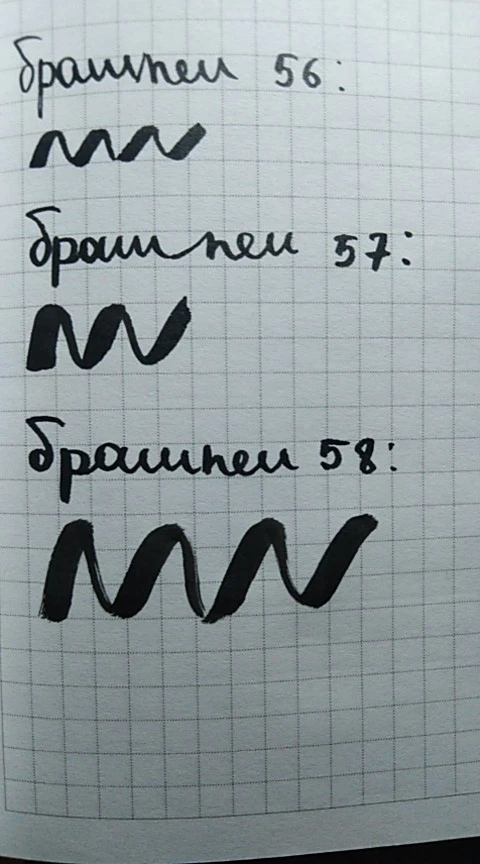 брашпен 56:
брашпен 57:
брашпен 58: